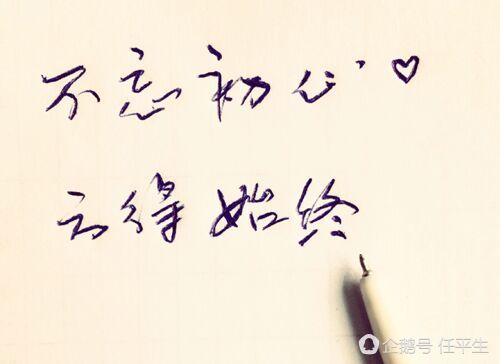 不忘初心♡
方得始终
企鹅号 任平生